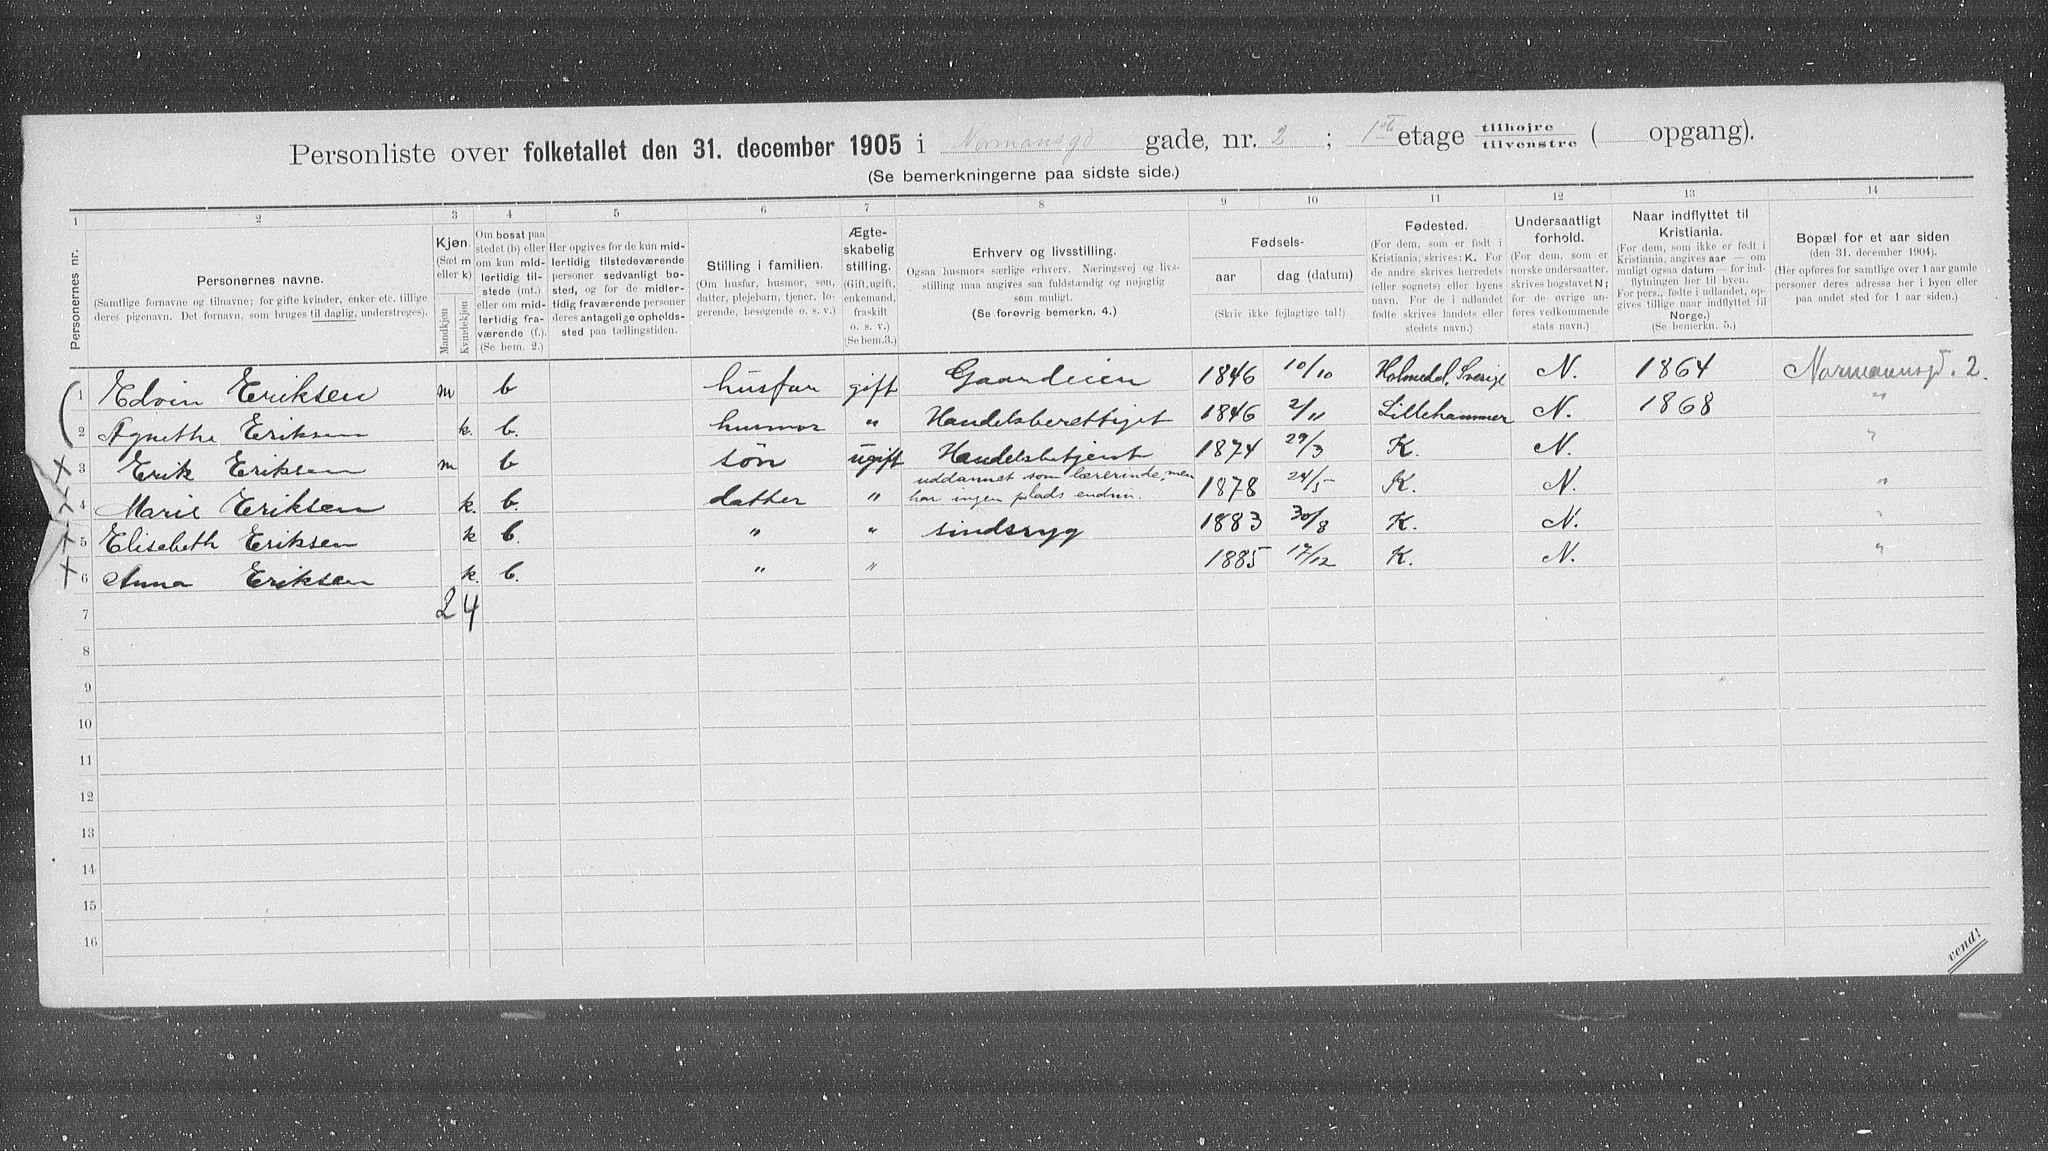 Personliste over folketallet den 31. december 1905 i Normansgd gade, nr. 2 ; 1ste etage tilhøjre / tilvenstre ( opgang).
(Se bemerkningerne paa sidste side.)
1 2 3 4 5 6 7 8 9 10 11 12 13 14
Personernes nr.
Personernes navne.
(Samtlige fornavne og tilnavne; for gifte kvinder, enker etc. tillige
deres pigenavn. Det fornavn, som bruges til daglig, understreges).
Kjøn.
(Sæt m
eller k)
Mandkjøn
Kvindekjøn
Om bosat paa
stedet (b) eller
om kun mid-
lertidig til-
stede (mt.)
eller om mid-
lertidig fra-
værende (f.).
(Se bem. 2.)
Her opgives for de kun mid-
lertidig tilstedeværende
personer sedvanligt bo-
sted, og for de midler-
tidig fraværende personer
deres antagelige opholds-
sted paa tællingstiden.
Stilling i familien.
(Om husfar, husmor, søn,
datter, plejebarn, tjener, lo-
gerende, besøgende o. s. v.)
Ægte-
skabelig
stilling.
(Gift, ugift,
enkemand,
fraskilt
o. s. v.)
(Se bem.3.)
Erhverv og livsstilling.
Ogsaa husmors særlige erhverv. Næringsvej og livs-
stilling maa angives saa fuldstændig og nøjagtig
som muligt.
(Se forøvrig bemerkn. 4.)
Fødsels-
aar dag (datum)
(Skriv ikke fejlagtige tal!)
Fødested.
(For dem, som er født i
Kristiania, skrives: K. For
de andre skrives herredets
(eller sognets) eller byens
navn. For de i udlandet
fødte skrives landets eller
stedets navn.)
Undersaatligt
forhold.
(For dem, som er
norske undersaatter,
skrives bogstavet N;
for de øvrige an-
føres vedkommende
stats navn.)
Naar indflyttet til
Kristiania.
(For dem, som ikke er født i
Kristiania, angives aar — om
muligt ogsaa datum — for ind-
flytningen her til byen.
For pers., født i udlandet, op-
gives tillige naar indflyttet til
Norge.)
(Se bemerkn. 5.)
Bopæl for et aar siden
(den 31. december 1904).
(Her opføres for samtlige over 1 aar gamle
personer deres adresse her i byen eller
paa andet sted for 1 aar siden.)
1 Edvin Eriksen m b husfar gift Gaardeier 1846 10/10 Holmedal, Sverige N. 1864 Normannsgd. 2.
2 Agnethe Eriksen k. b. husmor " Handelsberettiget 1846 2/11 Lillehammer N. 1868 "
3 Erik Eriksen m b søn ugift Handelsbetjent 1874 29/3 K. N. "
4 Marie Eriksen k. b. datter " uddannet som lærerinde, men
har ingen plads endnu. 1878 24/5 K. N. "
5 Elisabeth Eriksen k b. " " sindssyg 1883 30/8 K. N. "
6 Anna Eriksen k. b. " " 1885 17/12 K. N. "
7 2 4
8
9
10
11
12
13
14
15
16
vend!